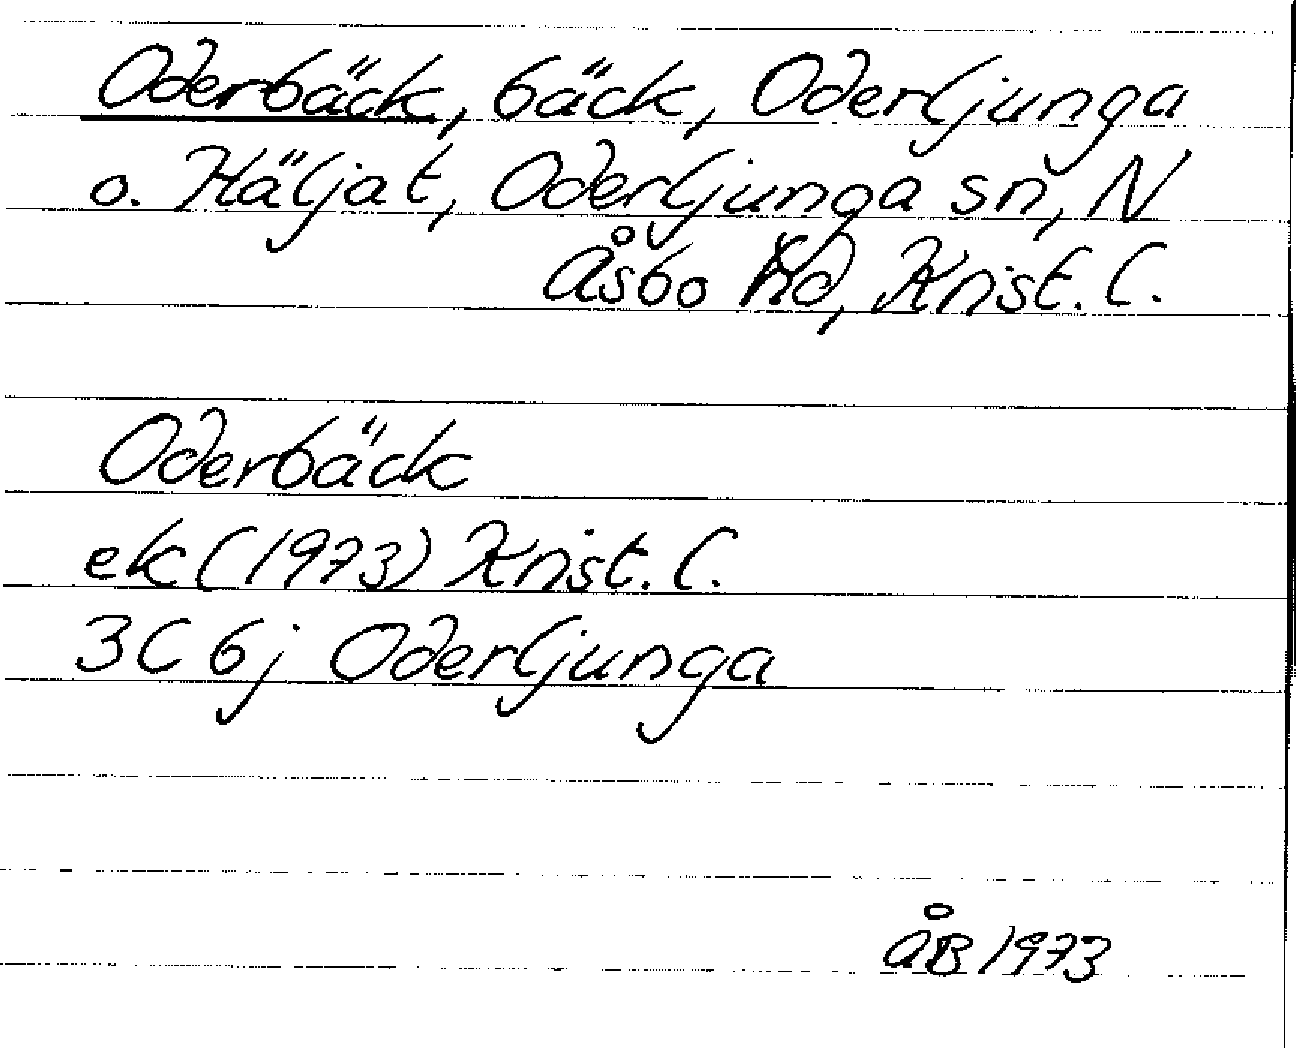 Oderbäck, bäck, Oderljunga
o. Häljalt, Oderljunga sn, N
Åsbo hd, Krist. l.
Oderbäck
ek (1973) Krist. l.
3C 6j Oderljunga
ÅB 1973